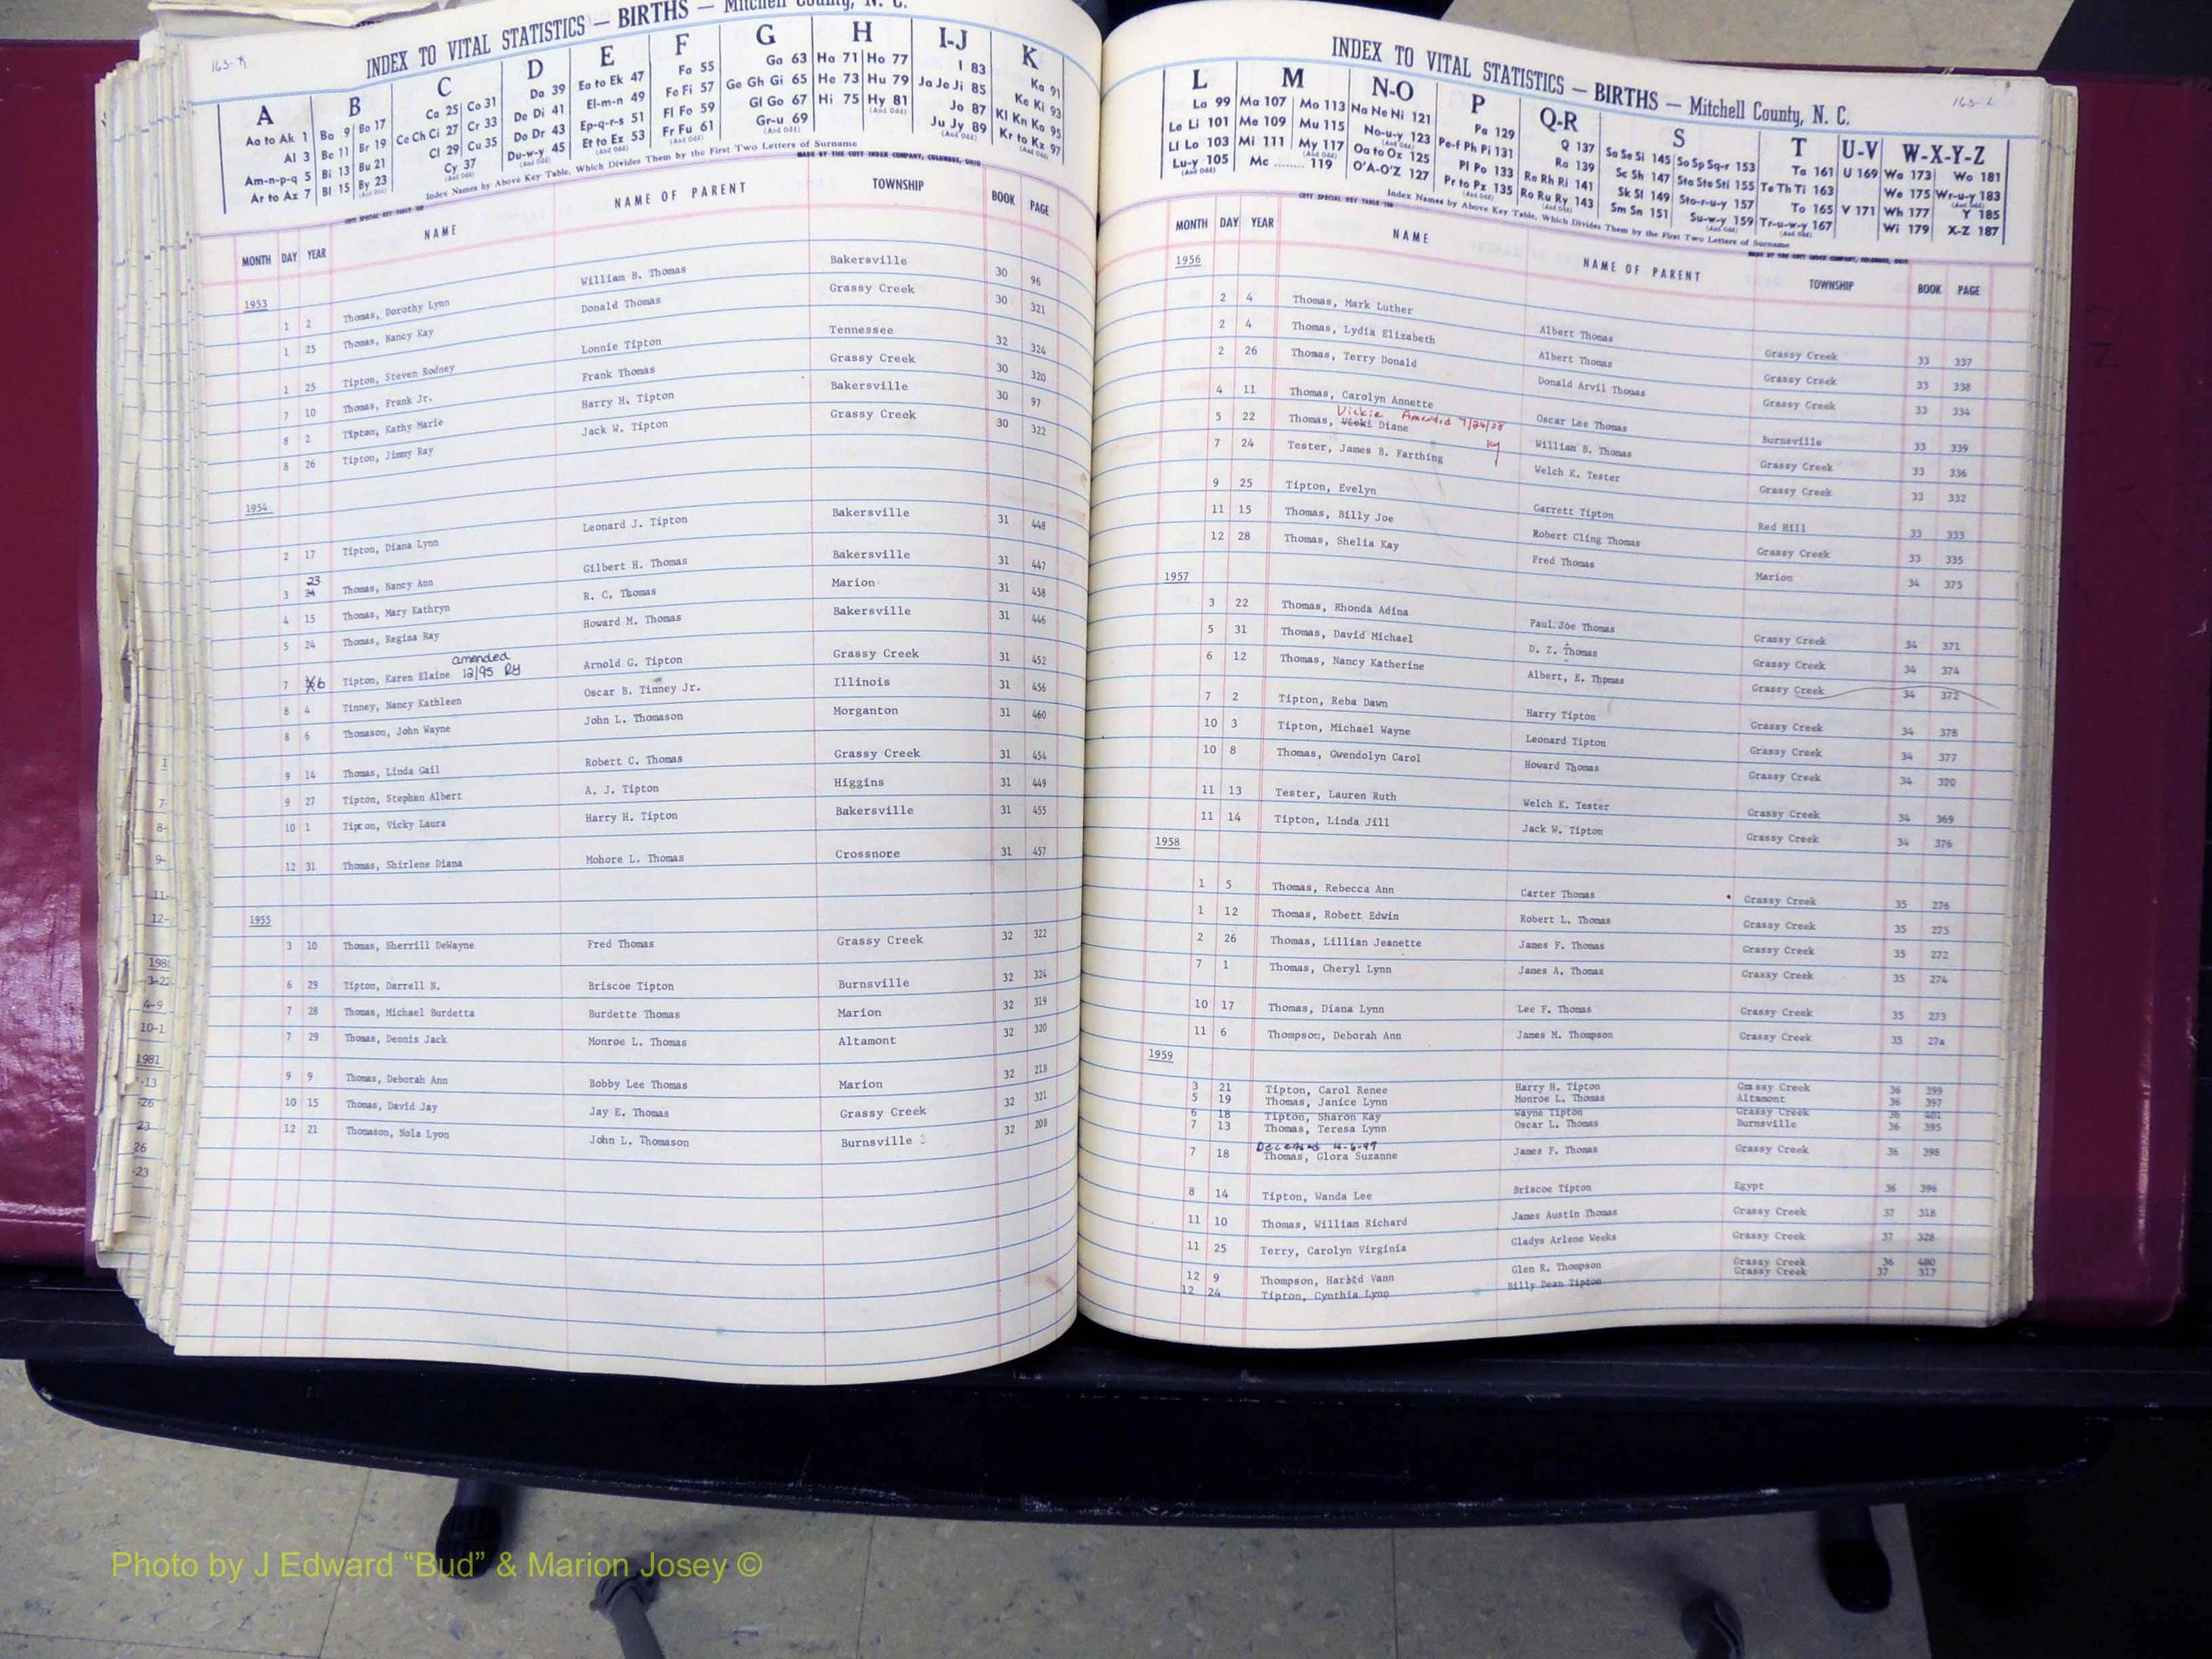 163-R
INDEX TO VITAL STATISTICS — BIRTHS — Mitchell County, N. C.
A B C D E F G H I-J K
Aa to Ak 1 Ba 9 Bo 17 Ca 25 Co 31 Da 39 Ea to Ek 47 Fa 55 Ga 63 Ha 71 Ho 77 I 83 Ka 91
Al 3 Be 11 Br 19 Ce Ch Ci 27 Cr 33 De Di 41 El-m-n 49 Fe Fi 57 Ge Gh Gi 65 He 73 Hu 79 Ja Je Ji 85 Ke Ki 93
Am-n-p-q 5 Bi 13 Bu 21 Cl 29 Cu 35 Do Dr 43 Ep-q-r-s 51 Fl Fo 59 Gl Go 67 Hi 75 Hy 81 Jo 87 Kl Kn Ko 95
Ar to Az 7 Bl 15 By 23 Cy 37 Du-w-y 45 Et to Ez 53 Fr Fu 61 Gr-u 69 Ju Jy 89 Kr to Kz 97
Index Names by Above Key Table, Which Divides Them by the First Two Letters of Surname
MADE BY THE COTT INDEX COMPANY, COLUMBUS, OHIO
MONTH DAY YEAR NAME NAME OF PARENT TOWNSHIP BOOK PAGE
1953
1 2 Thomas, Dorothy Lynn William B. Thomas Bakersville 30 96
1 25 Thomas, Nancy Kay Donald Thomas Grassy Creek 30 321
1 25 Tipton, Steven Rodney Lonnie Tipton Tennessee 32 324
7 10 Thomas, Frank Jr. Frank Thomas Grassy Creek 30 320
8 2 Tipton, Kathy Marie Harry H. Tipton Bakersville 30 97
8 26 Tipton, Jimmy Ray Jack W. Tipton Grassy Creek 30 322
1954
2 17 Tipton, Diana Lynn Leonard J. Tipton Bakersville 31 448
23
3 24 Thomas, Nancy Ann Gilbert H. Thomas Bakersville 31 447
4 15 Thomas, Mary Kathryn R. C. Thomas Marion 31 458
5 24 Thomas, Regina Ray Howard M. Thomas Bakersville 31 446
amended
7 6 Tipton, Karen Elaine 12/95 RY Arnold G. Tipton Grassy Creek 31 452
8 4 Tinney, Nancy Kathleen Oscar B. Tinney Jr. Illinois 31 456
8 6 Thomason, John Wayne John L. Thomason Morganton 31 460
9 14 Thomas, Linda Gail Robert C. Thomas Grassy Creek 31 454
9 27 Tipton, Stephen Albert A. J. Tipton Higgins 31 449
10 1 Tipton, Vicky Laura Harry H. Tipton Bakersville 31 455
12 31 Thomas, Shirlene Diana Mohore L. Thomas Crossnore 31 457
1955
3 10 Thomas, Sherrill DeWayne Fred Thomas Grassy Creek 32 322
6 29 Tipton, Darrell N. Briscoe Tipton Burnsville 32 324
7 28 Thomas, Michael Burdetta Burdette Thomas Marion 32 319
7 29 Thomas, Dennis Jack Monroe L. Thomas Altamont 32 320
9 9 Thomas, Deborah Ann Bobby Lee Thomas Marion 32 218
10 15 Thomas, David Jay Jay E. Thomas Grassy Creek 32 321
12 21 Thomason, Nola Lyon John L. Thomason Burnsville 32 208
INDEX TO VITAL STATISTICS — BIRTHS — Mitchell County, N. C.
L M N-O P Q-R S T U-V W-X-Y-Z
La 99 Ma 107 Mo 113 Na Ne Ni 121 Pa 129 Q 137 Sa Se Si 145 So Sp Sq-r 153 Ta 161 U 169 Wa 173 Wo 181
Le Li 101 Me 109 Mu 115 No-u-y 123 Pe-f Ph Pi 131 Ra 139 Sc Sh 147 Sta Ste Sti 155 Te Th Ti 163 We 175 Wr-u-y 183
Ll Lo 103 Mi 111 My 117 Oa to Ox 125 Pl Po 133 Re Rh Ri 141 Sk Sl 149 Sto-r-u-y 157 To 165 V 171 Wh 177 Y 185
Lu-y 105 Mc ........ 119 O'A-O'Z 127 Pr to Pz 135 Ro Ru Ry 143 Sm Sn 151 Su-w-y 159 Tr-u-w-y 167 Wi 179 X-Z 187
Index Names by Above Key Table, Which Divides Them by the First Two Letters of Surname
MONTH DAY YEAR NAME NAME OF PARENT TOWNSHIP BOOK PAGE
1956
2 4 Thomas, Mark Luther Albert Thomas Grassy Creek 33 337
2 4 Thomas, Lydia Elizabeth Albert Thomas Grassy Creek 33 338
2 26 Thomas, Terry Donald Donald Arvil Thomas Grassy Creek 33 334
4 11 Thomas, Carolyn Annette Oscar Lee Thomas Burnsville 33 339
Vickie Amended
5 22 Thomas, Vicki Diane William B. Thomas Grassy Creek 33 336
7 24 Tester, James B. Farthing Welch K. Tester Grassy Creek 33 332
9 25 Tipton, Evelyn Garrett Tipton Red Hill 33 333
11 15 Thomas, Billy Joe Robert Cling Thomas Grassy Creek 33 335
12 28 Thomas, Shelia Kay Fred Thomas Marion 34 375
1957
3 22 Thomas, Rhonda Adina Paul Joe Thomas Grassy Creek 34 371
5 31 Thomas, David Michael D. Z. Thomas Grassy Creek 34 374
6 12 Thomas, Nancy Katherine Albert, E. Thpmas Grassy Creek 34 372
7 2 Tipton, Reba Dawn Harry Tipton Grassy Creek 34 378
10 3 Tipton, Michael Wayne Leonard Tipton Grassy Creek 34 377
10 8 Thomas, Gwendolyn Carol Howard Thomas Grassy Creek 34 320
11 13 Tester, Lauren Ruth Welch K. Tester Grassy Creek 34 369
11 14 Tipton, Linda Jill Jack W. Tipton Grassy Creek 34 376
1958
1 5 Thomas, Rebecca Ann Carter Thomas Grassy Creek 35 276
1 12 Thomas, Robett Edwin Robert L. Thomas Grassy Creek 35 275
2 26 Thomas, Lillian Jeanette James F. Thomas Grassy Creek 35 272
7 1 Thomas, Cheryl Lynn James A. Thomas Grassy Creek 35 274
10 17 Thomas, Diana Lynn Lee F. Thomas Grassy Creek 35 273
11 6 Thompson, Deborah Ann James M. Thompson Grassy Creek 35
1959
3 21 Tipton, Carol Renee Harry H. Tipton Grassy Creek 36 399
5 19 Thomas, Janice Lynn Monroe L. Thomas Altamont 36 397
6 18 Tipton, Sharon Kay Wayne Tipton Grassy Creek 36 401
7 13 Thomas, Teresa Lynn Oscar L. Thomas Burnsville 36 395
Deceased 4-6-99
7 18 Thomas, Glora Suzanne James F. Thomas Grassy Creek 36 398
8 14 Tipton, Wanda Lee Briscoe Tipton Egypt 36 396
11 10 Thomas, William Richard James Austin Thomas Grassy Creek 37 318
11 25 Terry, Carolyn Virginia Gladys Arlene Weeks Grassy Creek 37 328
12 9 Thompson, Harold Vann Glen R. Thompson Grassy Creek 36 400
12 24 Tipton, Cynthia Lynn Billy Dean Tipton Grassy Creek 37 317
Photo by J Edward “Bud” & Marion Josey ©